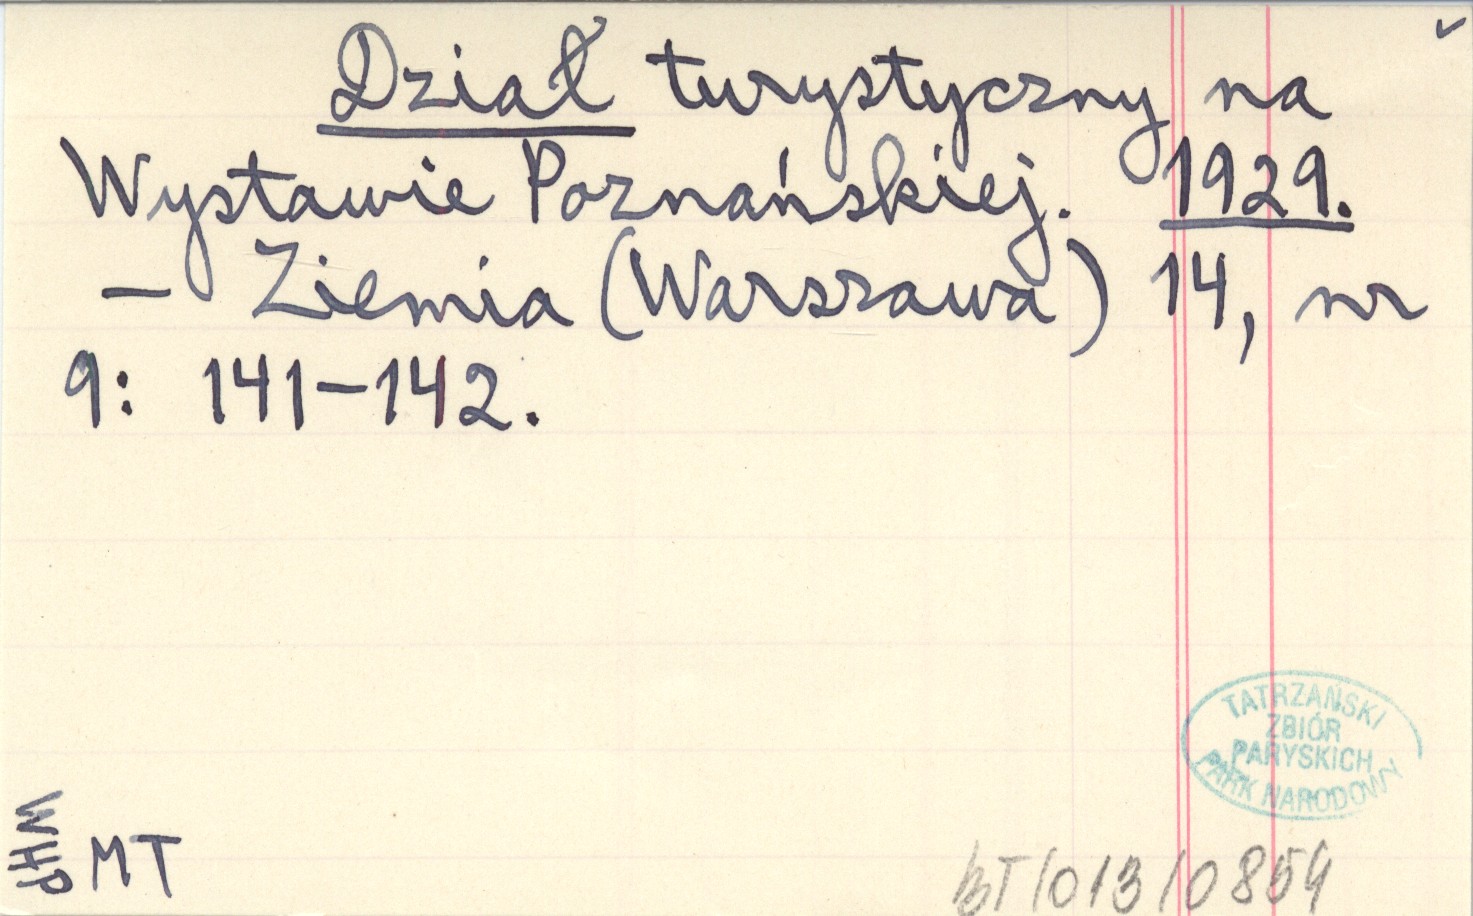 Dział turystyczny na
Wystawie Poznańskiej. 1929.
– Ziemia (Warszawa) 14, nr
9: 141–142.
TATRZAŃSKI
ZBIÓR
PARYSKICH
PARK NARODOWY
WHP
MT
BT/013/0854